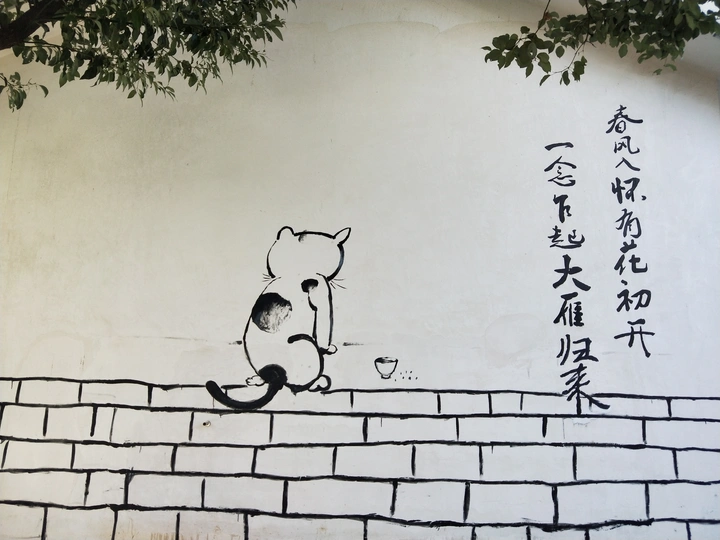 春风入怀有花初开
一念乍起大雁归来